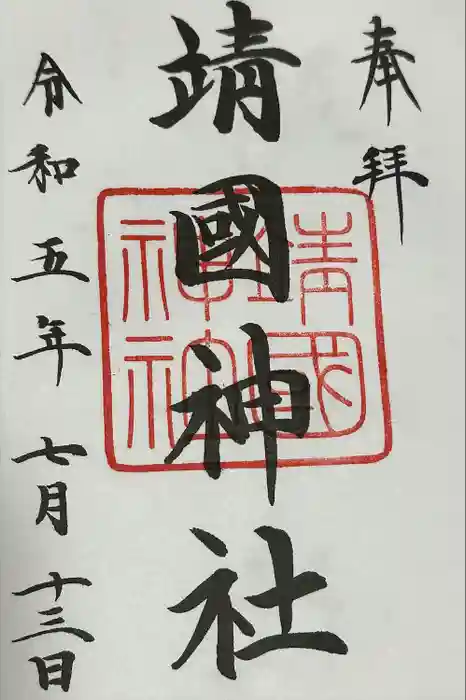 奉拝
靖國神社
靖國神社
令和五年七月十三日